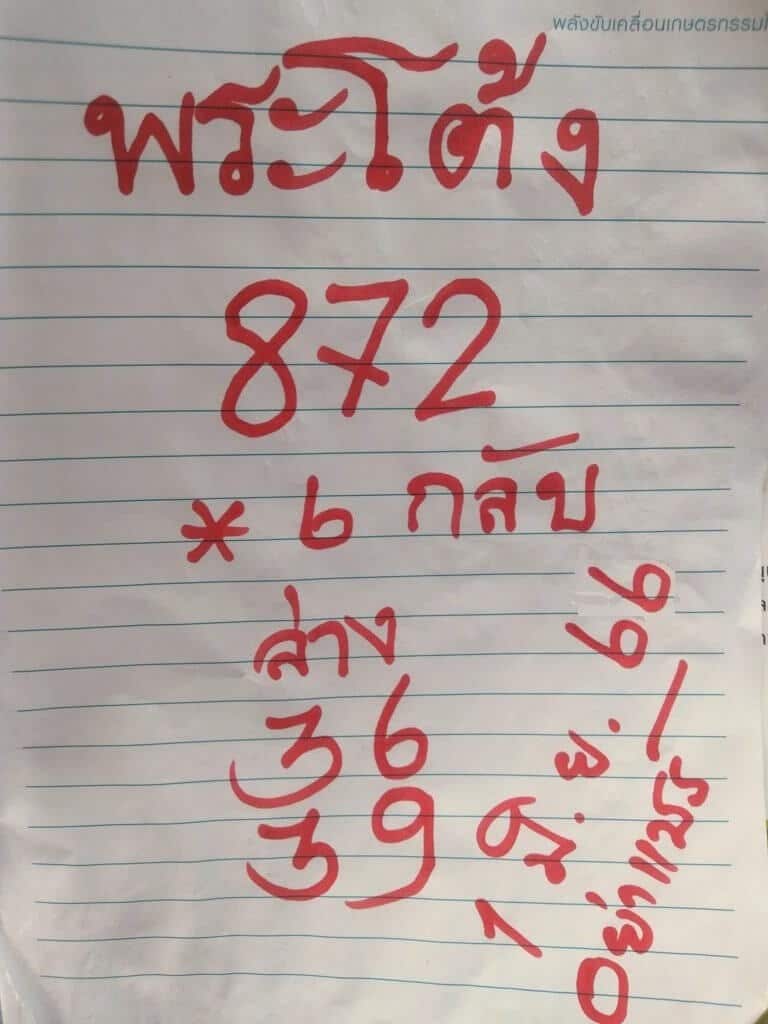 พลังขับเคลื่อนเกษตรกรรมไ
พระโต้ง
872
* 6 กลับ
ล่าง
36
39
1 มิ.ย. 66
อย่าแชร์